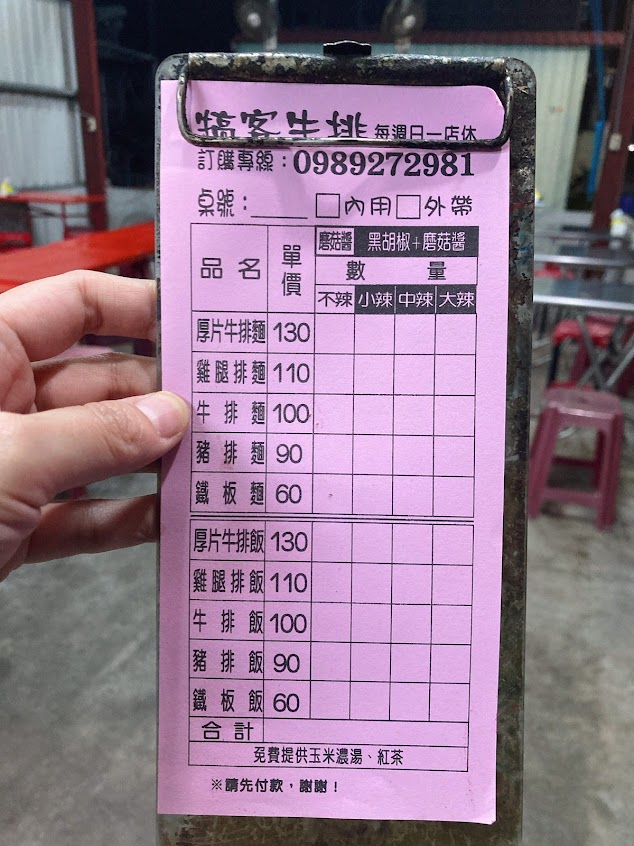 犒客牛排 每週日一店休
訂購專線：0989272981
桌號：____ □內用□外帶
品名 單價 蘑菇醬 黑胡椒+蘑菇醬
數量
不辣 小辣 中辣 大辣
厚片牛排麵 130
雞腿排麵 110
牛排麵 100
豬排麵 90
鐵板麵 60
厚片牛排飯 130
雞腿排飯 110
牛排飯 100
豬排飯 90
鐵板飯 60
合計
免費提供玉米濃湯、紅茶
※請先付款，謝謝！